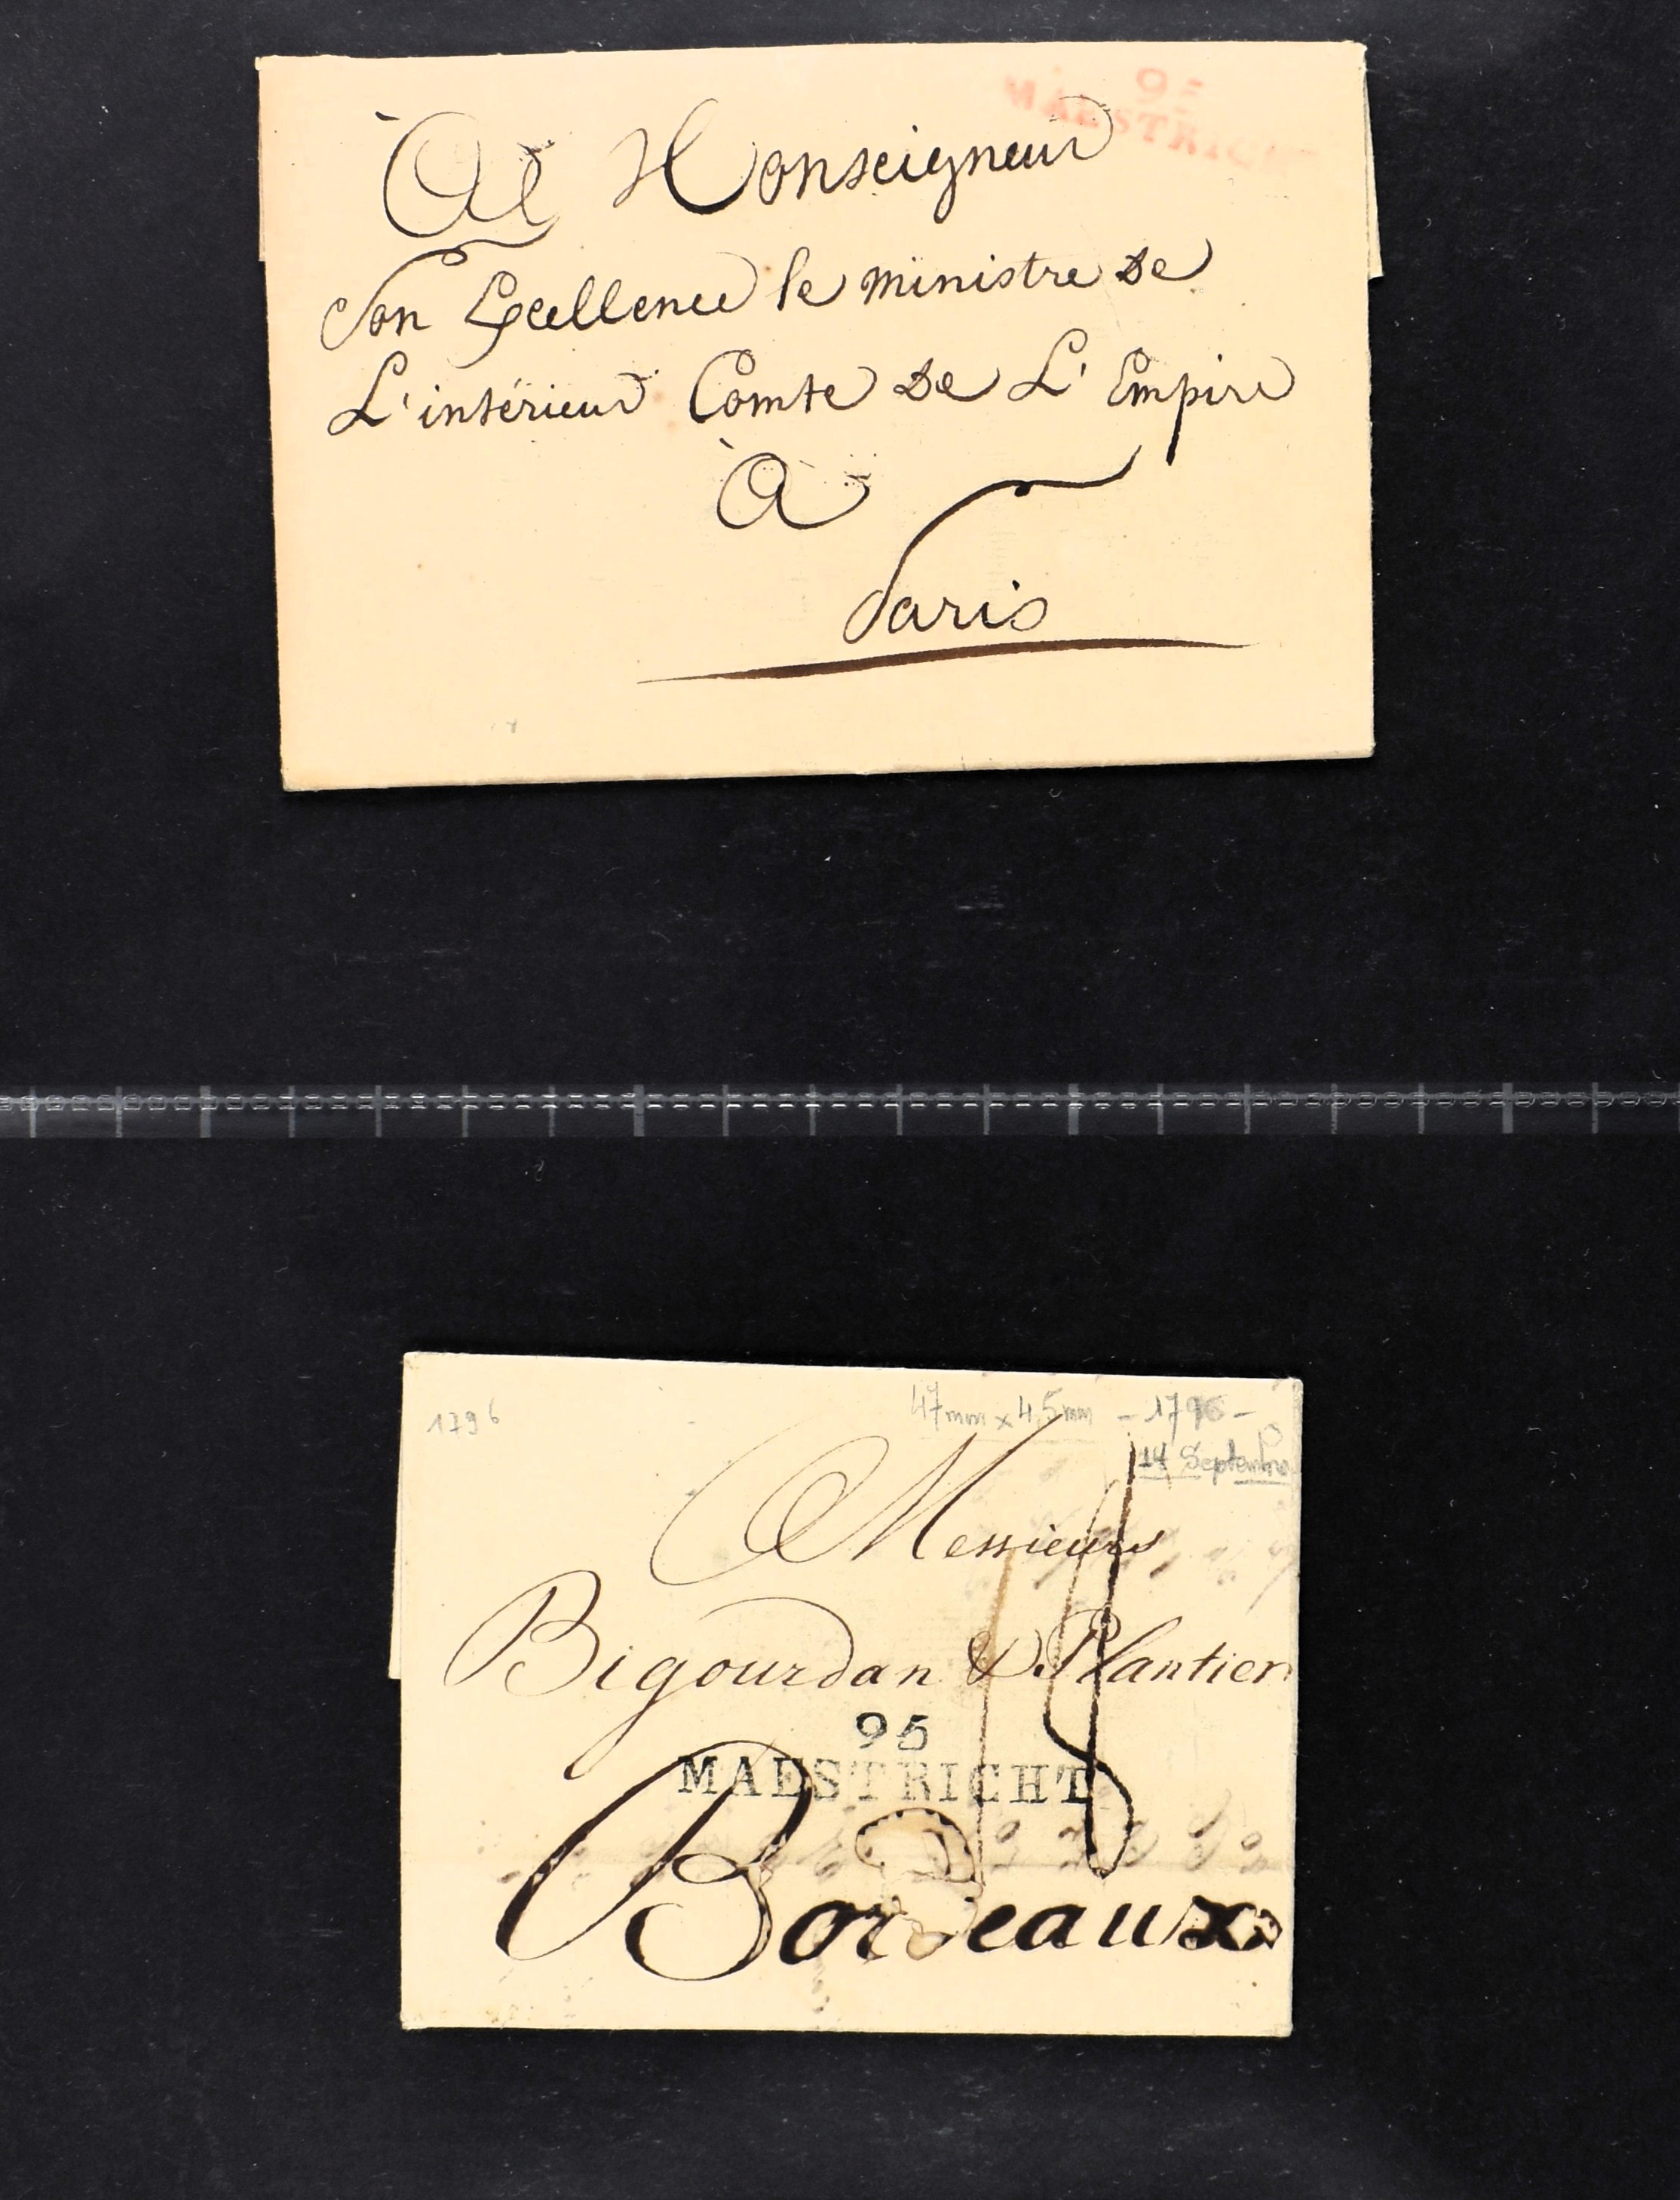 95
MAESTRICHT
À Monseigneur
Son Excellence le ministre de
L'intérieur Comte de L'Empire
À
Paris
1796
47mm x 4,5mm - 1796 -
14 Septembre
Messieurs
Bigourdan & Plantier
95
MAESTRICHT
Bordeaux